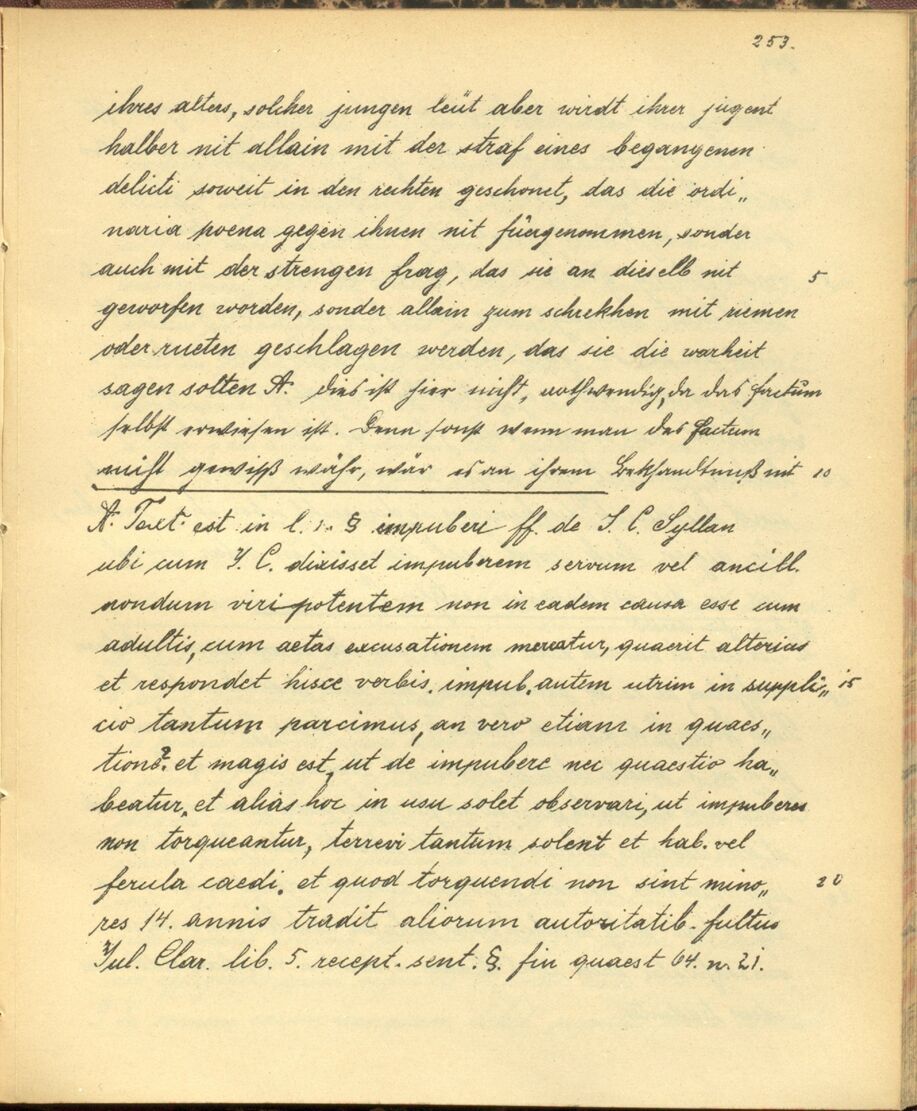 253.
ihres alters, solcher jungen leüt aber wirdt ihrer jugent
halber nit allain mit der straf eines begangenen
delicti soweit in den rechten geschonet, das die ordi„
naria poena gegen ihnen nit füergenommen, sonder
auch mit der strengen frag, das sie an dieselb nit 5
geworfen worden, sonder allain zum schrekhen mit riemen
oder rueten geschlagen werden, das sie die warheit
sagen solten A. dies ist hier nicht, nothwendig, da das factum
selbst erwiesen ist. Denn sonst wenn man das factum
nicht gewiß währ, wär es an ihrem Bekhandtnuß nit 10
A. Text. est in l. 1. § impuberi ff. de S. C. Syllan
ubi cum I. C. dixisset impuberem servum vel ancill.
nondum viripotentem non in eadem causa esse cum
adultis, cum aetas excusationem mereatur, quaerit alterius
et respondet hisce verbis. impub. autem utrim in suppli„ 15
cio tantum parcimus, an vero etiam in quaes„
tione? et magis est, ut de impubere nec quaestio ha„
beatur. et alias hoc in usu solet observari, ut impuberes
non torqueantur, terreri tantum solent et hab. vel
ferula caedi. et quod torquendi non sint mino„ 20
res 14. annis tradit aliorum autoritatib. fultus
Jul. Clar. lib. 5. recept. sent. §. fin quaest 64. n. 21.